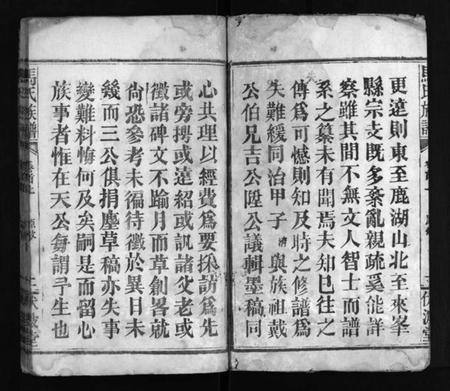 更遠則東至鹿湖山北至來峯
縣宗支既多紊亂親疏奚能詳
察雖其間不無文人智士而譜
系之纂未有聞焉夫知已往之
傳爲可憾則知及時之修譜爲
失難緩同治甲子 與族祖戴
公伯兄吉公陞公議輯墨稿同
馬氏族譜
心共理以經費爲要採訪爲先
或旁搜或遠紹或訊諸父老或
徵諸碑文不踰月而草創畧就
尚恐參考未備待徵於異日未
幾而三公俱捐塵草稿亦失事
變難料悔何及矣嗣是而留心
族事者惟在天公每謂予生也